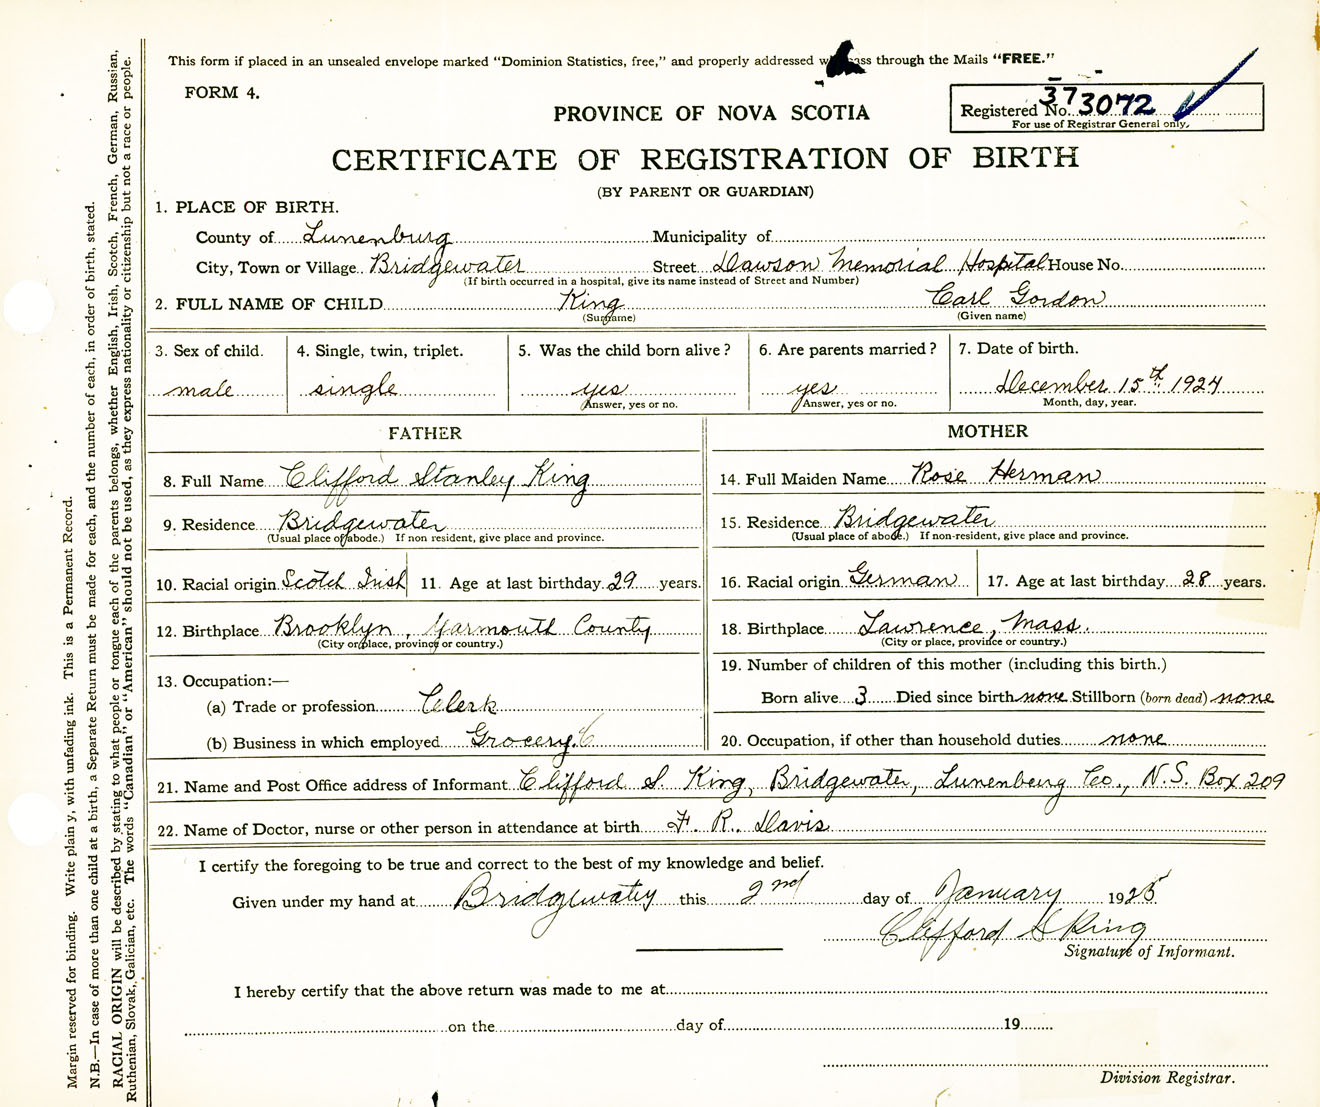 This form if placed in an unsealed envelope marked "Dominion Statistics, free," and properly addressed ass through the Mails "FREE."
FORM 4.
PROVINCE OF NOVA SCOTIA
Registered No. 373072
For use of Registrar General only.
CERTIFICATE OF REGISTRATION OF BIRTH
(BY PARENT OR GUARDIAN)
1. PLACE OF BIRTH.
County of Lunenburg Municipality of
City, Town or Village Bridgewater Street Dawson Memorial Hospital House No.
(If birth occurred in a hospital, give its name instead of Street and Number)
2. FULL NAME OF CHILD King Carl Gordon
(Surname) (Given name)
3. Sex of child. 4. Single, twin, triplet. 5. Was the child born alive? 6. Are parents married? 7. Date of birth.
male single yes yes December 15th 1924
Answer, yes or no. Answer, yes or no. Month, day, year.
FATHER MOTHER
8. Full Name Clifford Stanley King
9. Residence Bridgewater
(Usual place of abode.) If non resident, give place and province.
10. Racial origin Scotch Irish 11. Age at last birthday 29 years.
12. Birthplace Brooklyn, Yarmouth County
(City or place, province or country.)
13. Occupation:—
(a) Trade or profession Clerk
(b) Business in which employed Grocery.
14. Full Maiden Name Rose Herman
15. Residence Bridgewater
(Usual place of abode.) If non-resident, give place and province.
16. Racial origin German 17. Age at last birthday 28 years.
18. Birthplace Lawrence, Mass.
(City or place, province or country.)
19. Number of children of this mother (including this birth.)
Born alive 3 Died since birth none Stillborn (born dead) none
20. Occupation, if other than household duties none
21. Name and Post Office address of Informant Clifford S. King, Bridgewater, Lunenberg Co., N.S. Box 209
22. Name of Doctor, nurse or other person in attendance at birth F. R. Davis
I certify the foregoing to be true and correct to the best of my knowledge and belief.
Given under my hand at Bridgewater this 2nd day of January 1925
Clifford S King
Signature of Informant.
I hereby certify that the above return was made to me at
on the day of 19
Division Registrar.
Margin reserved for binding. Write plain y, with unfading ink. This is a Permanent Record.
N.B.—In case of more than one child at a birth, a Separate Return must be made for each, and the number of each, in order of birth, stated.
RACIAL ORIGIN will be described by stating to what people or tongue each of the parents belongs, whether English, Irish, Scotch, French, German, Russian,
Ruthenian, Slovak, Galician, etc. The words "Canadian" or "American" should not be used, as they express nationality or citizenship but not a race or people.